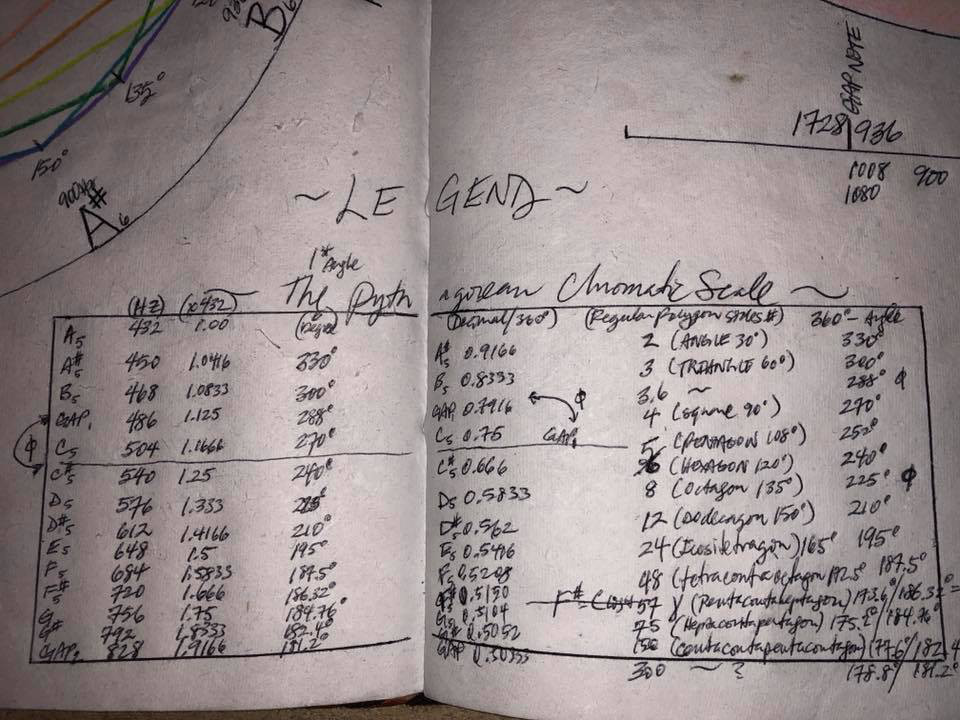 B6
135°
150°
A#6
GAP NOTE
1728 | 936
1008 900
1080
~ LEGEND ~
1st Angle
~ The Pythagorean Chromatic Scale ~
(HZ) (x432) (Degree) (Decimal/360°) (Regular Polygon sides #) 360° - Angle
A5 432 1.00
A#5 450 1.0416 330° A#5 0.9166 2 (ANGLE 30°) 330°
B5 468 1.0833 300° B5 0.8333 3 (TRIANGLE 60°) 300°
GAP1 486 1.125 288° GAP1 0.7916 Φ 3.6 ~ 288° Φ
Φ C5 504 1.1666 270° C5 0.75 GAP1 4 (square 90°) 270°
5 (PENTAGON 108°) 252°
C#5 540 1.25 240° C#5 0.666 6 (HEXAGON 120°) 240°
D5 576 1.333 225° D5 0.5833 8 (Octagon 135°) 225° Φ
D#5 612 1.4166 210° D#5 0.562 12 (Dodecagon 150°) 210°
E5 648 1.5 195° E5 0.5416 24 (Icositetragon) 165° 195°
F5 684 1.5833 187.5° F5 0.5208 48 (tetracontaoctagon 172.5° 187.5°
F#5 720 1.666 186.32° 0.5150 F# 57 (Pentacontaheptagon) 173.6°/186.32°
G 756 1.75 184.76° G5 0.5104 75 (Heptacontapentagon) 175.2°/184.76°
G# 792 1.8333 G# 0.5052 150 (contapentacontagon) 177.6°/182.4
GAP2 828 1.9166 181.2° GAP 0.50333
300 ~ ? 178.8°/181.2°